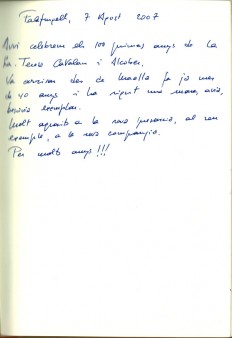 Palafrugell, 7 Agost 2007
Avui celebrem els 100 primers anys de la
Sra. Teresa Catalan i Alcober.
Va arribar des de Maella fa ja més
de 40 anys i ha sigut una mare, avia,
besavia exemplar.
Molt agraits a la seva presencia, al seu
exemple, a la seva companyia.
Per molts anys!!!